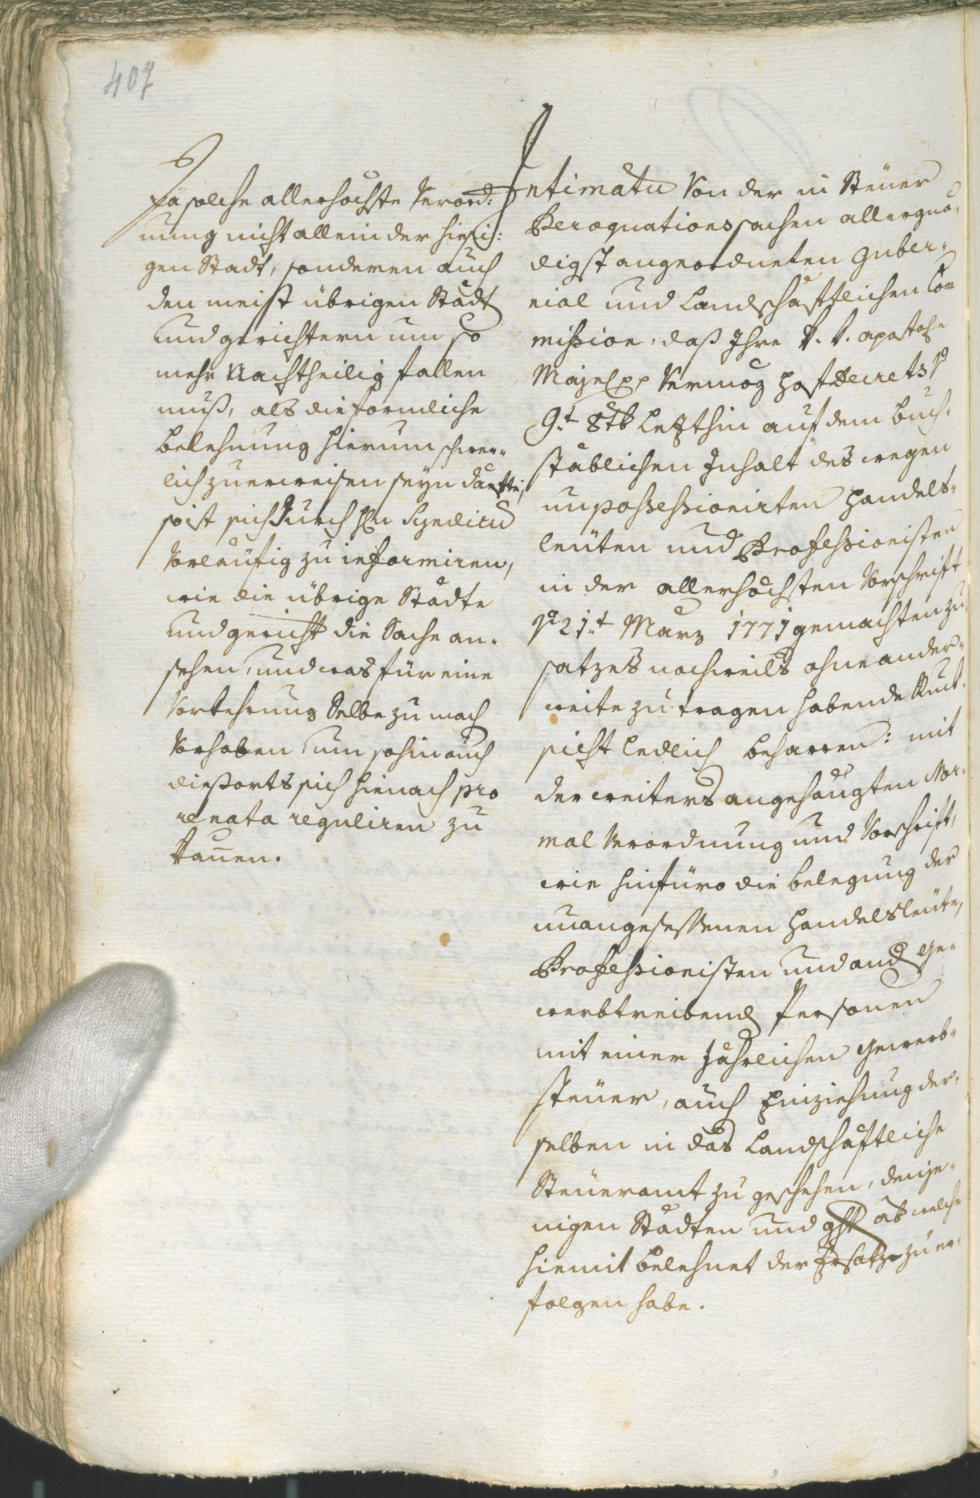 407
Da solche allerhöchste Verord:
nung nicht allein der hiesi:
gen Stadt, sonderen auch
den meist übrigen Städt
und gerichtern um so
mehr Nachtheilig fallen
muß, als die formliche
belehnung hierum schwer-
lich zuerweisen seyn darfte,
so ist sich durch hln Syndicus
Vorläufig zu informiren,
wie die übrige Städte
und gericht die Sache an-
sehen, und was für eine
Vorkehrung Selbe zu mach
Vorhaben, um sohin auch
diesorts sich hienach pro
re nata reguliren zu
kännen.
Intimatum Von der in Steuer
Peraequationssachen allergnä-
digst angeordneten Guber-
nial und Landschaftlichen Com
mission, daß Ihre k. k. apostolische
Majest pp Vermög hof decrets de
9t 8tb letzthin auf dem buch-
stäblichen Inhalt des wegen
unpossessionirten handels-
leuten und Professionisten
in der allerhöchsten Vorschrift
de 21t Marz 1771 gemachten zu
satzes nochweils ohne ander-
weite zu tragen habende Ruck
sicht ledlich beharren: mit
der weiters angehängten Nor-
mal Verordnung und Vorschrift,
wie hinfüro die belegung der
unangesessenen handelsleute,
Professionisten und and Ge-
werbtreibend Personen
mit einer jährlichen Gewerb-
steuer, auch Einziehung der-
selben in das Landschaftliche
Steueramt zu geschehen, denje-
nigen Städten und ght ab welche
hiemit belehnet der Ersatz zu er-
folgen habe.